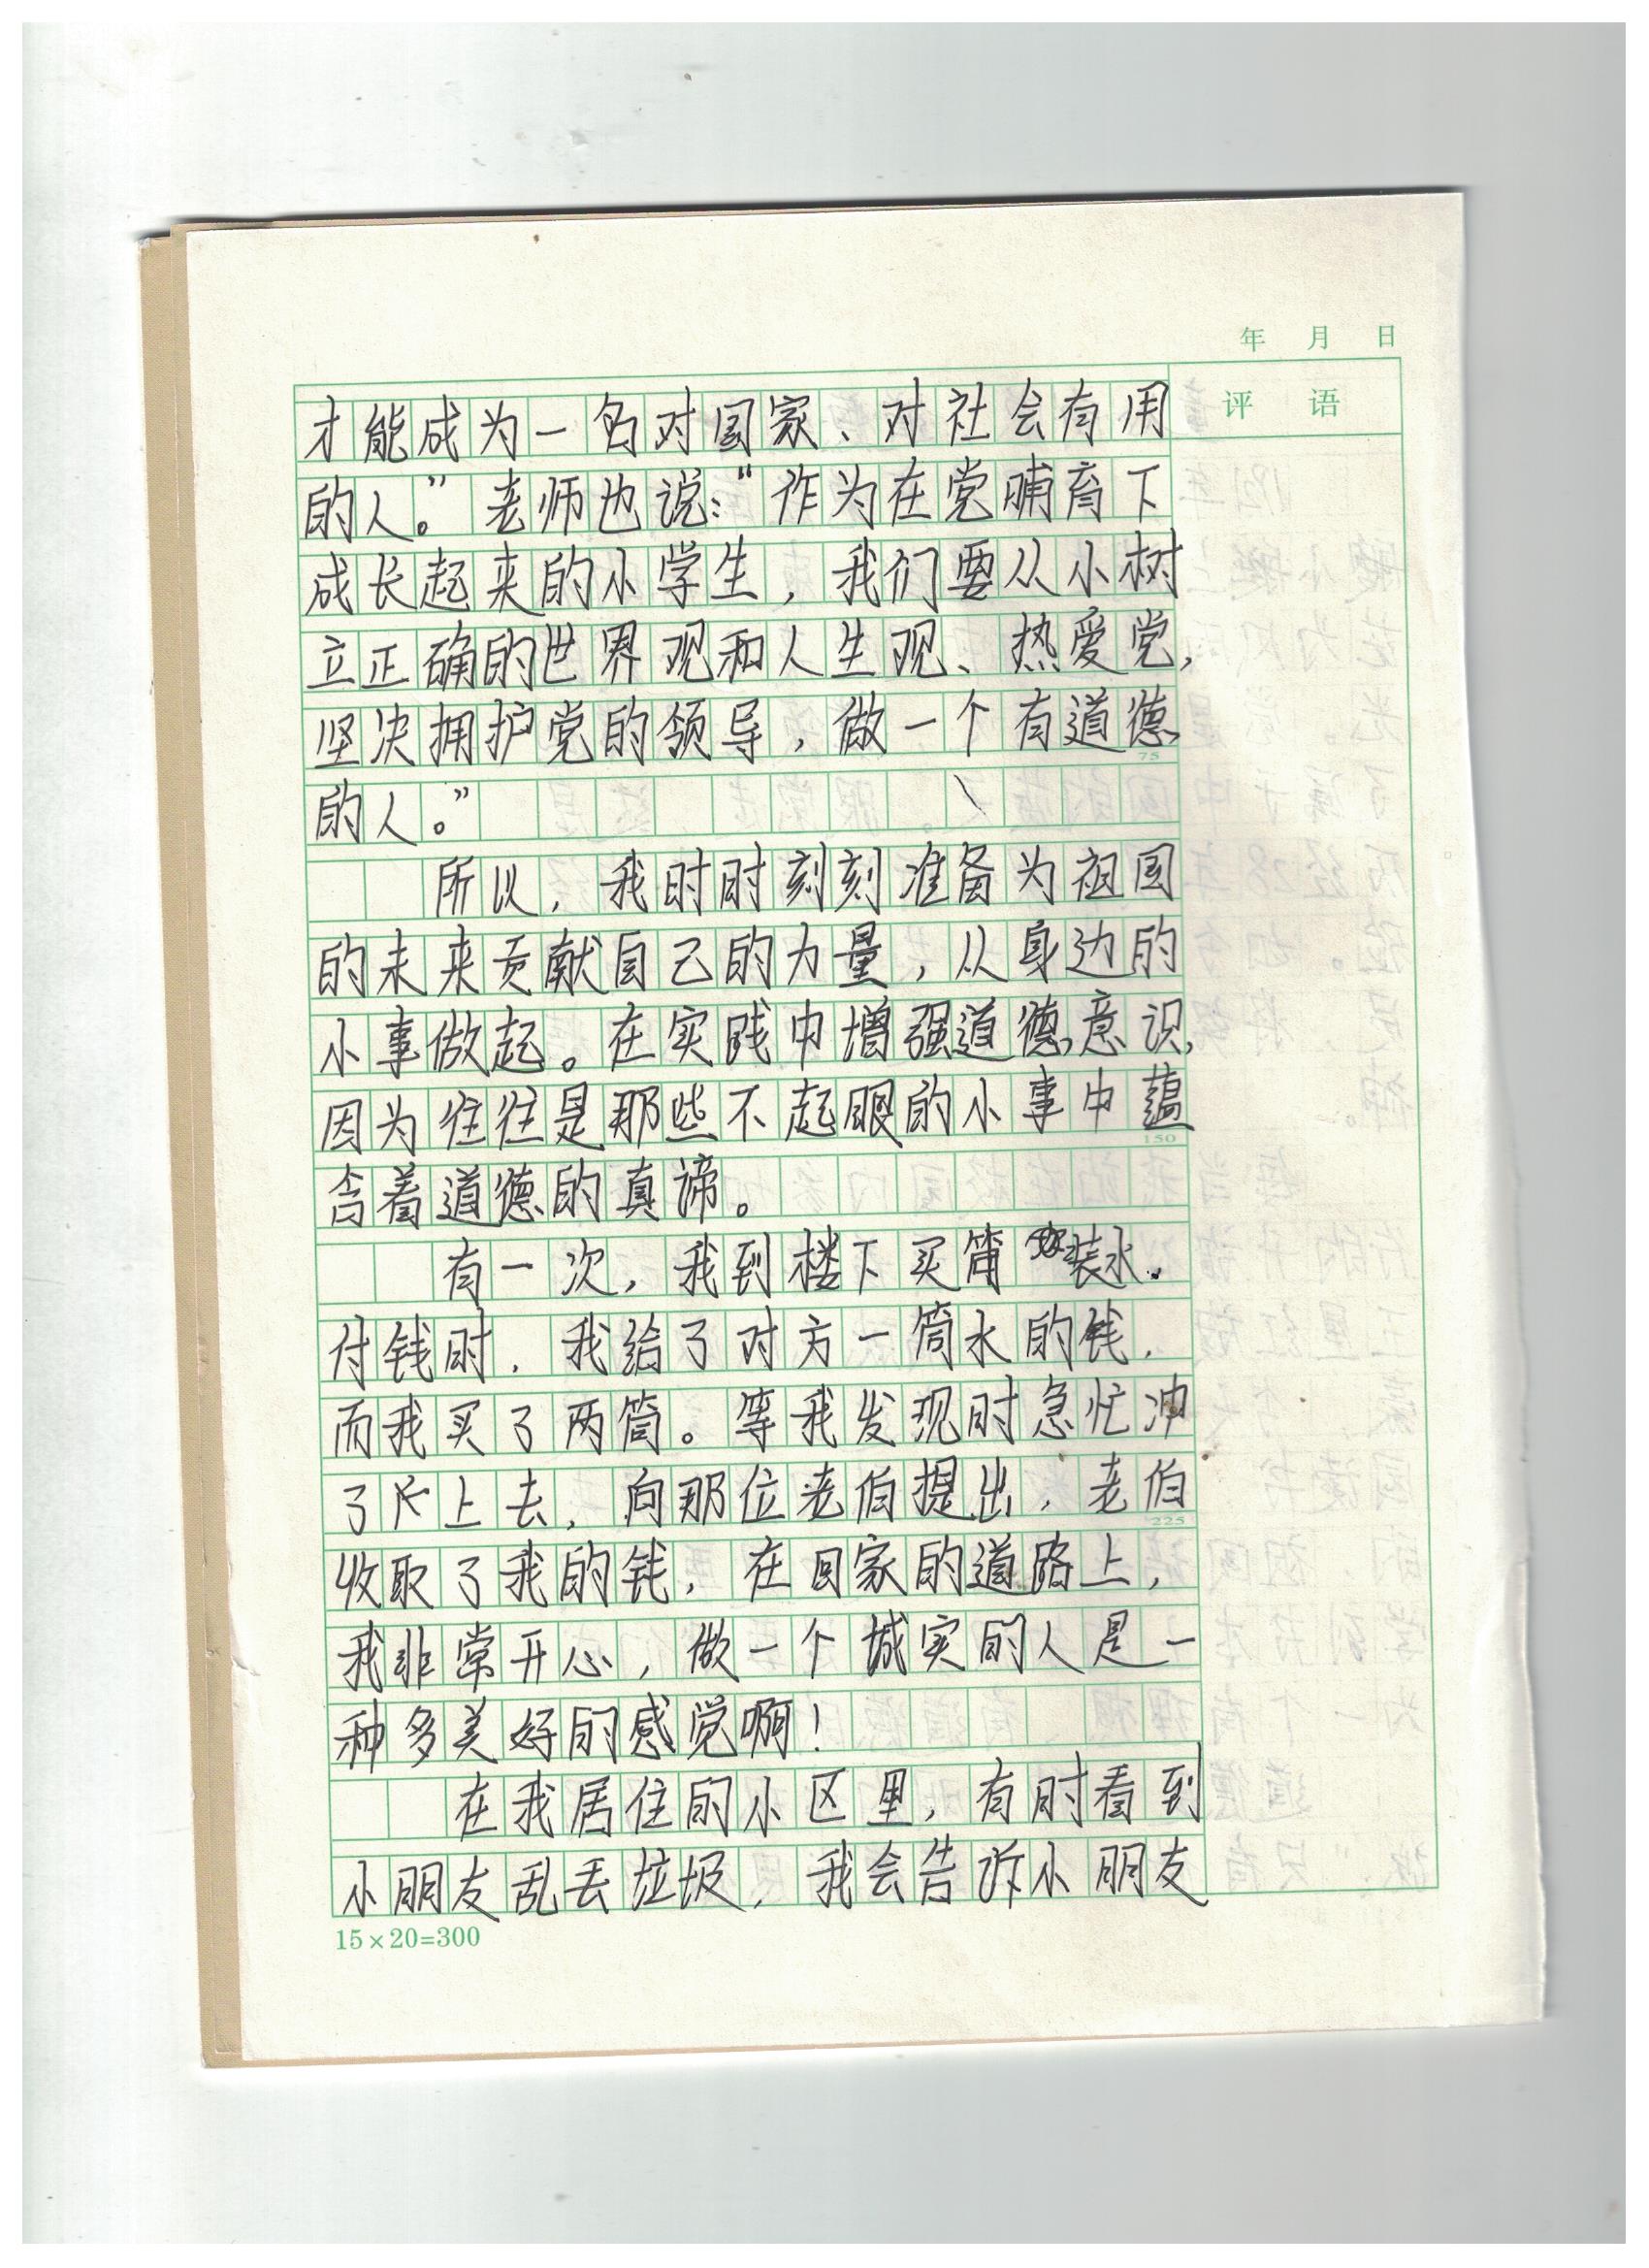 年 月 日
评 语
才能成为一名对国家、对社会有用
的人。”老师也说:“作为在党哺育下
成长起来的小学生,我们要从小树
立正确的世界观和人生观、热爱党,
坚决拥护党的领导,做一个有道德
75
的人。”
所以,我时时刻刻准备为祖国
的未来贡献自己的力量,从身边的
小事做起。在实践中增强道德意识,
因为往往是那些不起眼的小事中蕴
150
含着道德的真谛。
有一次,我到楼下买筒装水。
付钱时,我给了对方一筒水的钱,
而我买了两筒。等我发现时急忙冲
了上去,向那位老伯提出,老伯
225
收取了我的钱,在回家的道路上,
我非常开心,做一个城实的人是一
种多美好的感觉啊!
在我居住的小区里,有时看到
小朋友乱丢垃圾,我会告诉小朋友
15×20=300